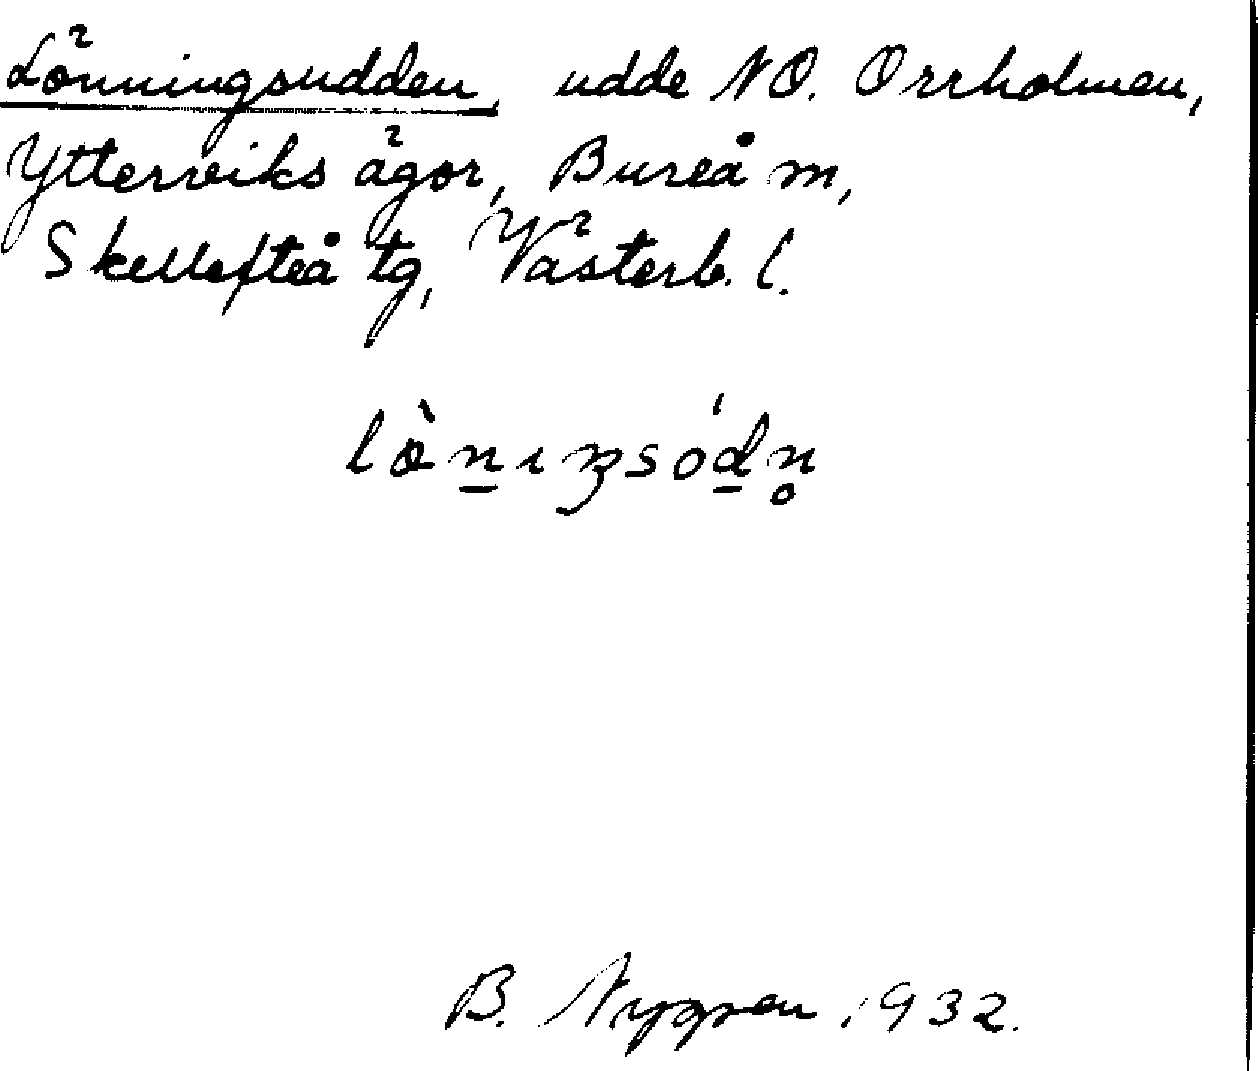 Lönningsudden, udde NO. Orrholmen,
Ytterviks ägor, Bureå m,
Skellefteå tg, Västerb. l.
lò̀n̠ıŋsód̠n̥
B. Nygren 1932.